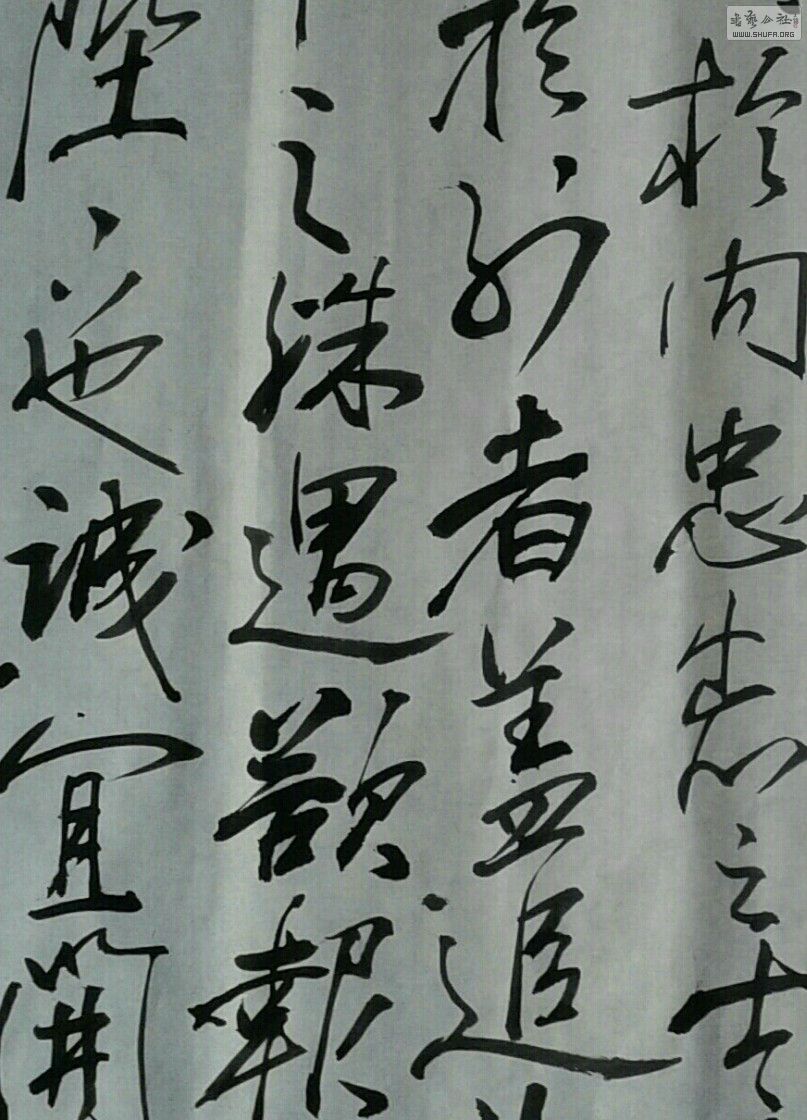 書藝公社
WWW.SHUFA.ORG
於内忠志之士
於外者盖追
之殊遇欲報
陛下也誠宜開